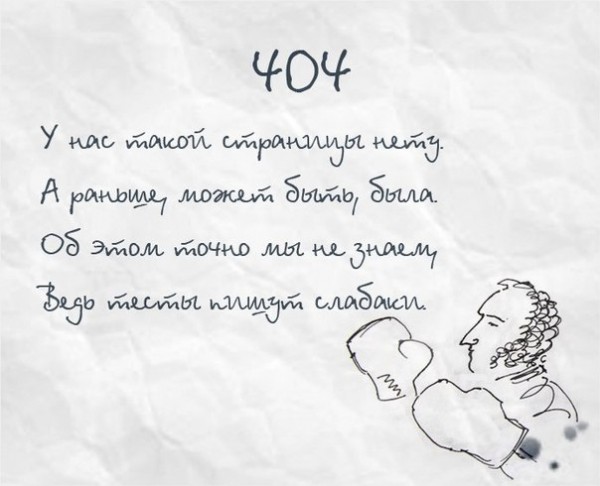 404
У нас такой страницы нету.
А раньше, может быть, была.
Об этом точно мы не знаем,
Ведь тесты пишут слабаки.